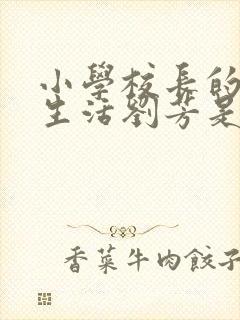 小學校長的
生活劉芳是
香菜牛肉餃子